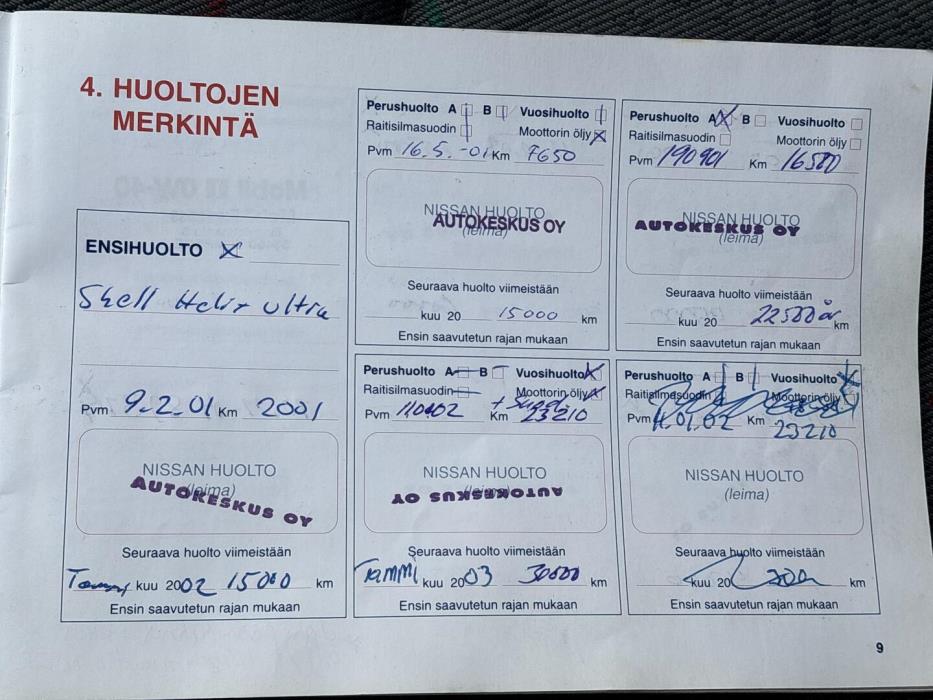 4. HUOLTOJEN
MERKINTÄ
ENSIHUOLTO X
Shell Helix Ultra
Pvm 9.2.01 Km 2001
NISSAN HUOLTO
(leima)
AUTOKESKUS OY
Seuraava huolto viimeistään
kuu 2002 15000 km
Ensin saavutetun rajan mukaan
Perushuolto A B Vuosihuolto
Raitisilmasuodin Moottorin öljy X
Pvm 16.5.-01 Km 7650
NISSAN HUOLTO
(leima)
AUTOKESKUS OY
Seuraava huolto viimeistään
kuu 20 15000 km
Ensin saavutetun rajan mukaan
Perushuolto A X B Vuosihuolto
Raitisilmasuodin Moottorin öljy
Pvm 190901 Km 16500
NISSAN HUOLTO
(leima)
AUTOKESKUS OY
Seuraava huolto viimeistään
kuu 20 22500 km
Ensin saavutetun rajan mukaan
Perushuolto A B Vuosihuolto X
Raitisilmasuodin Moottorin öljy X
Pvm 110402 Km 23210
NISSAN HUOLTO
(leima)
AUTOKESKUS OY
Seuraava huolto viimeistään
TAMMI kuu 2003 30000 km
Ensin saavutetun rajan mukaan
Perushuolto A B Vuosihuolto X
Raitisilmasuodin Moottorin öljy
Pvm 11.01.02 Km 23210
NISSAN HUOLTO
(leima)
Seuraava huolto viimeistään
kuu 20 km
Ensin saavutetun rajan mukaan
9